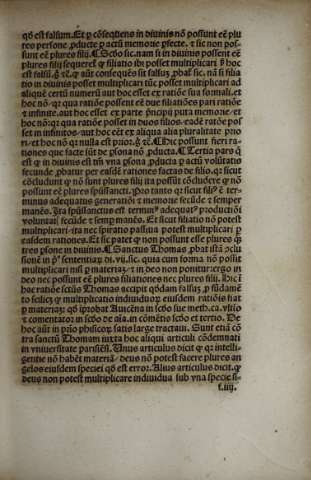 qđ est falsum. Et p cōseqūens in diuinis nō possunt eē plu
res persone ꝓducte p actū memorie ꝑfecte. ⁊ sic non pos-
sunt eē plures filij. ¶ Scđo sic. nam si in diuinis possent eē
plures filij sequeret̄ ꝙ filiatio ibi posset multiplicari. s̄ hoc
est falsū. g̊ ⁊c̄. ꝙ aūt consequēs sit falsuꝫ ꝓbat̄ sic. nā si filia
tio in diuinis posset multiplicari tūc posset multiplicari ad
aliquē certū numerū aut hoc esset ex ratiōe sua formali. et
hoc nō. qꝛ qua ratiōe possent eē due filiatiōes pari ratiōe
⁊ infinite. aut hoc esset ex parte ṗncipij puta memorie. et
hoc nō: qꝛ qua ratiōe posset in duos filios. eadē ratōe pos
set in infinitos. aut hoc eēt ex aliqua alia pluralitate prio
ri. et hoc nō qꝛ nulla est prior. g̊ ⁊c̄. ¶ Hic possunt fieri ra-
tiones que facte sūt de ꝑsona nō ꝓducta. ¶ Tertia pars ꝙ
est ꝙ in diuinis est tm̄ vna ꝑsona ꝓducta ꝑ actū volūtatis
fecunde ꝓbatur per easdē rationes factas de filio. qꝛ sicut
cōcludunt ꝙ nō sunt plures filij ita possūt cōcludere ꝙ nō
possunt eē plures spūssancti. Pro tanto qꝛ sicut filiꝰ ē ter-
minus adequatus generatiōi ⁊ memorie fecūde ⁊ semper
manēs. Ita spūssanctus est terminꝰ adequatꝰ productiōi
volūtati fecūde ⁊ semꝑ manēs. Et sicut filiatio nō potest
multiplicari. ita nec spiratio passiua potest multiplicari ꝑ
easdem rationes. Et sic patet ꝙ non possunt esse plures ꝗꝫ
tres ꝑsone in diuinis. ¶ Sanctus Thomas ꝓbat istā ꝯclu
sionē in pͦ sententiaꝝ di. vij. sic. quia cum forma nō possit
multiplicari nisi ꝑ materiaꝫ: ⁊ in deo non ponitur: ergo in
deo nec possunt eē plures filiationes nec plures filij. ¶ Dico
hac ratiōe sctūs Thomas accipit q̇ddam falsuꝫ. ꝑ fūdamē
to scilicꝫ ꝙ multiplicatio indiuiduoꝝ eiusdem ratiōis fiat
ꝑ materiaꝫ: qđ iꝓbat Auicēna in scđo sue meth. ca. vltīo
⁊ cōmentatoꝛ in scđo de aīa. in cōmēto scđo et tertio. De
hoc aūt in prīo phisicoꝝ satis large tractaui. Sunt etiā cō
tra sanctū Thomam iuxta hoc aliqui articuli cōdemnati
in vniuersitate parisiēsi. Unus articulus dicit ꝙ qꝛ intelli-
gentie nō habēt materiā: deus nō potest facere plures an
gelos eiusdem speciei qđ est errοꝛ. Alius articulus dicit. ꝙ
deus non potest multiplicare indiuidua sub vna specie si-
f. iiij.